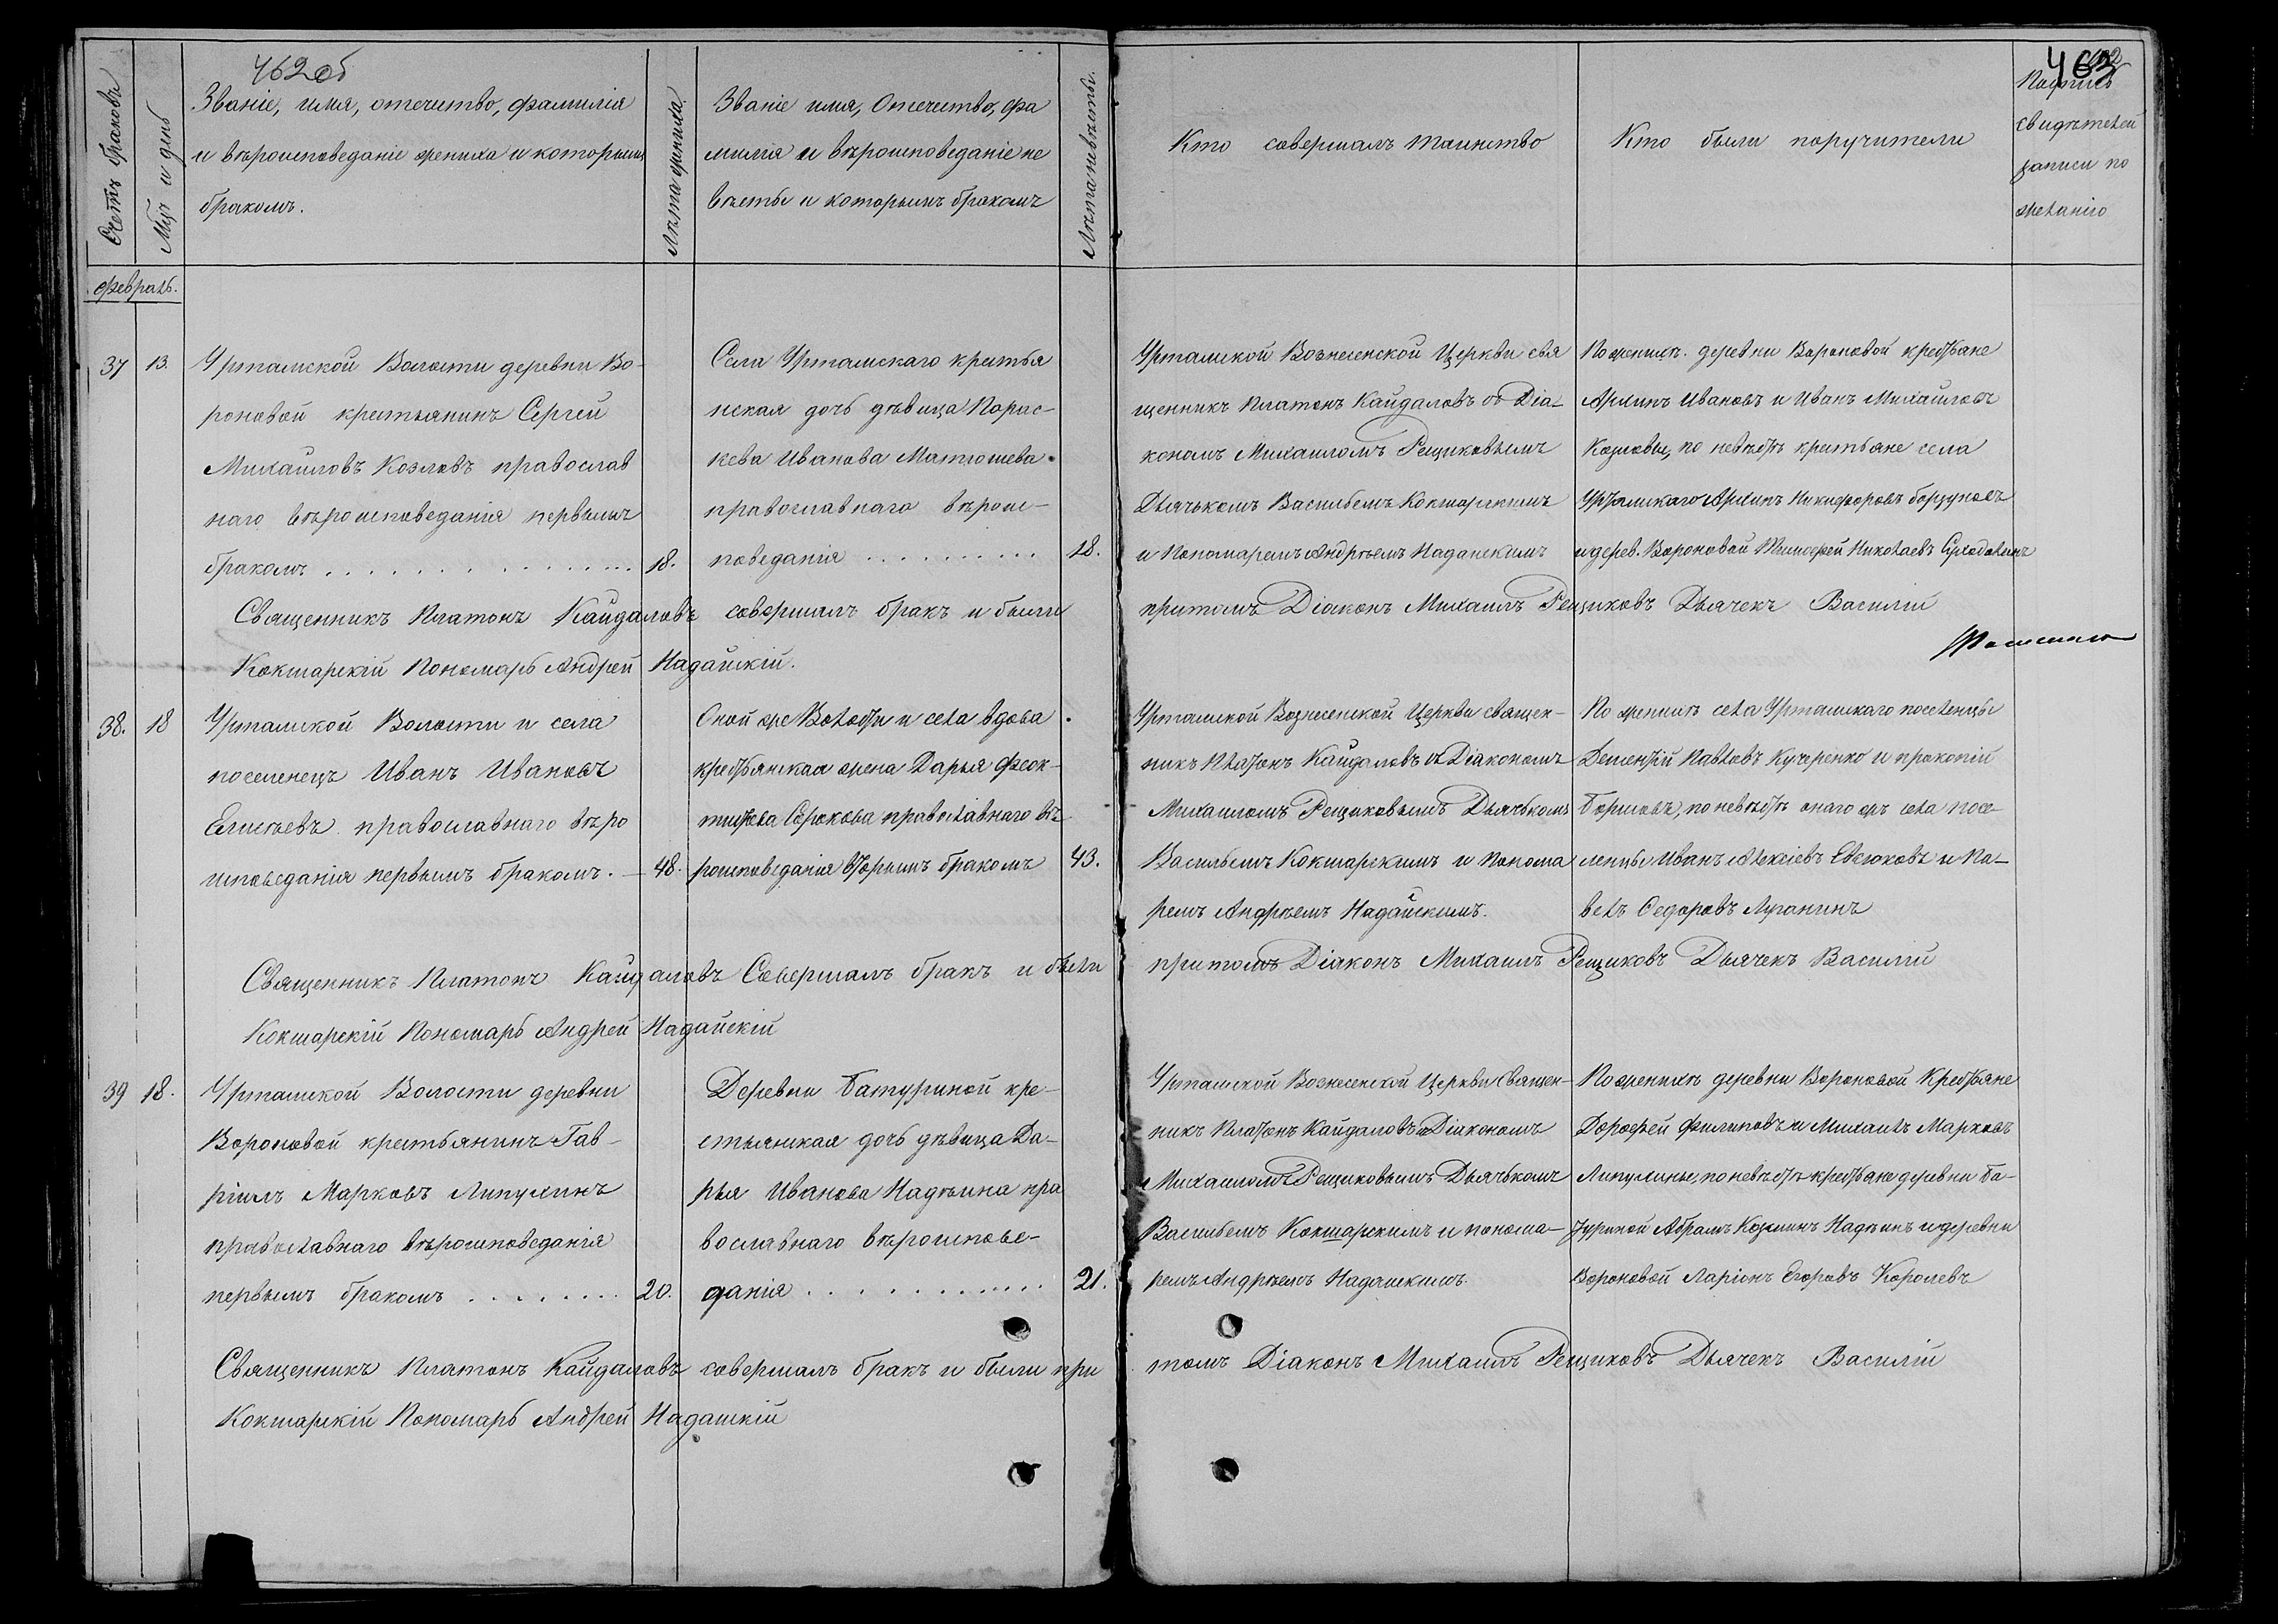 462об
463
Счетъ браковъ
Мцъ и день
Званіе, имя, отечитво, фамилія
и вѣроисповеданіе жениха и которымъ
бракомъ.
Лѣта жениха
Званіе имя, Отечитво, фа
милія и вѣроисповеданіе не
весты и которымъ бракомъ
Лѣта невѣсты.
Кто совершалъ таинство
Кто были поручители
Подпись
свидѣтелей
записи по
желанію
февраль.
37
13.
Уртамской Волости деревни Во-
роновой крестьянинъ Сергей
Михаиловъ Козловъ православ
наго вѣроисповеданія первымъ
бракомъ . . . . . . . . . . . . . .
18.
Села Уртамскаго крестья
нская дочь дѣвица Парас-
кева Иванова Матюшева
православнаго вѣроис-
поведанія . . . . . . . . . .
18.
Уртамской Вознесенской Церкви свя
щенникъ Платонъ Кайдаловъ съ Діа-
кономъ Михаиломъ Рещиковымъ
Дьячькомъ Васильемъ Кокшарскимъ
и Пономаремъ Андрѣемъ Надайскимъ
По женихѣ деревни Вороновой крестьяне
Архипъ Ивановъ и Иванъ Михайловъ
Козловы, по невѣстѣ крестьяне села
Уртамскаго Архипъ Никифоровъ борзуновъ
и дерев. Вороновой Тимофей Николаевъ
Священникъ Платонъ Кайдаловъ совершалъ бракъ и были притомъ Діаконъ Михаилъ Рещиковъ Дьячекъ Василій
Кокшарскій Пономарь Андрей Надайскій.
38.
18
Уртамской Волости и села
поселенецъ Иванъ Ивановъ
Елисѣевъ православнаго вѣро
исповеданія первымъ бракомъ. —
48.
Оной же Волости и села вдова
крестьянская жена Дарья Феок-
тистова Сѣрюкова православнаго вѣ
роисповеданія вторымъ бракомъ
43.
Уртамской Вознесенской Церкви священ-
никъ Платонъ Кайдаловъ съ Діакономъ
Михаиломъ Рещиковымъ Дьячькомъ
Васильемъ Кокшарскимъ и Понома
ремъ Андрѣемъ Надайскимъ.
По женихѣ села Уртамскаго поселенцы
Дементій Павловъ Кучеренко и прокопій
Борисовъ, по невѣстѣ онаго жъ села посе-
ленцы Иванъ Алексіевъ Евсюковъ и Па-
велъ Федоровъ Луганинъ
Священникъ Платонъ Кайдаловъ Совершалъ бракъ и были притомъ Діаконъ Михаилъ Рещиковъ Дьячекъ Василій
Кокшарскій Пономарь Андрей Надайскій
39
18.
Уртамской Волости деревни
Вороновой крестьянинъ Гав-
ріилъ Марковъ Липухинъ
православнаго вѣроисповеданія
первымъ бракомъ . . . . . . . .
20.
Деревни Батуриной кре-
стьянская дочь дѣвица Да-
рья Иванова Надѣина пра
вославнаго вѣроисповѣ-
данія . . . . . . . . . . . .
21.
Уртамской Вознесенской Церкви Священ-
никъ Платонъ Кайдаловъ съ Діакономъ
Михаиломъ Рещиковымъ Дьячькомъ
Васильемъ Кокшарскимъ и понома-
ремъ Андрѣемъ Надаискимъ.
По женихѣ деревни Вороновой Крестьяне
Дорофей Филиповъ и Михаилъ Марковъ
Липухины, по невѣстѣ крестьяне деревни Ба-
туриной Абрамъ Козминъ Надѣинъ и деревни
Вороновой Ларіонъ Егоровъ Королевъ
Священникъ Платонъ Кайдаловъ совершалъ бракъ и были при томъ Діаконъ Михаилъ Рещиковъ Дьячекъ Василій
Кокшарскій Пономарь Андрей Надаискій